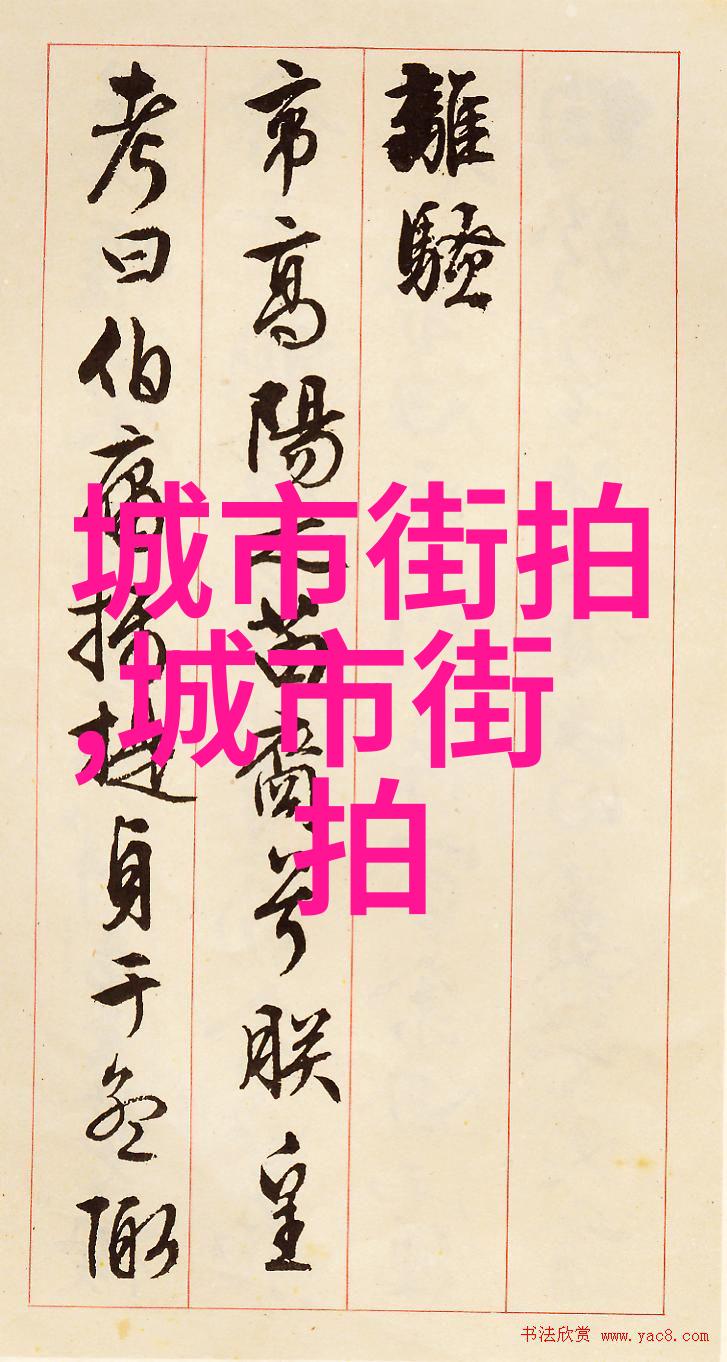 離騷
帝高陽之苗裔兮朕皇
考曰伯庸攝提貞于孟陬
城市街拍
,城市街
拍
书法欣赏 www.yac8.com